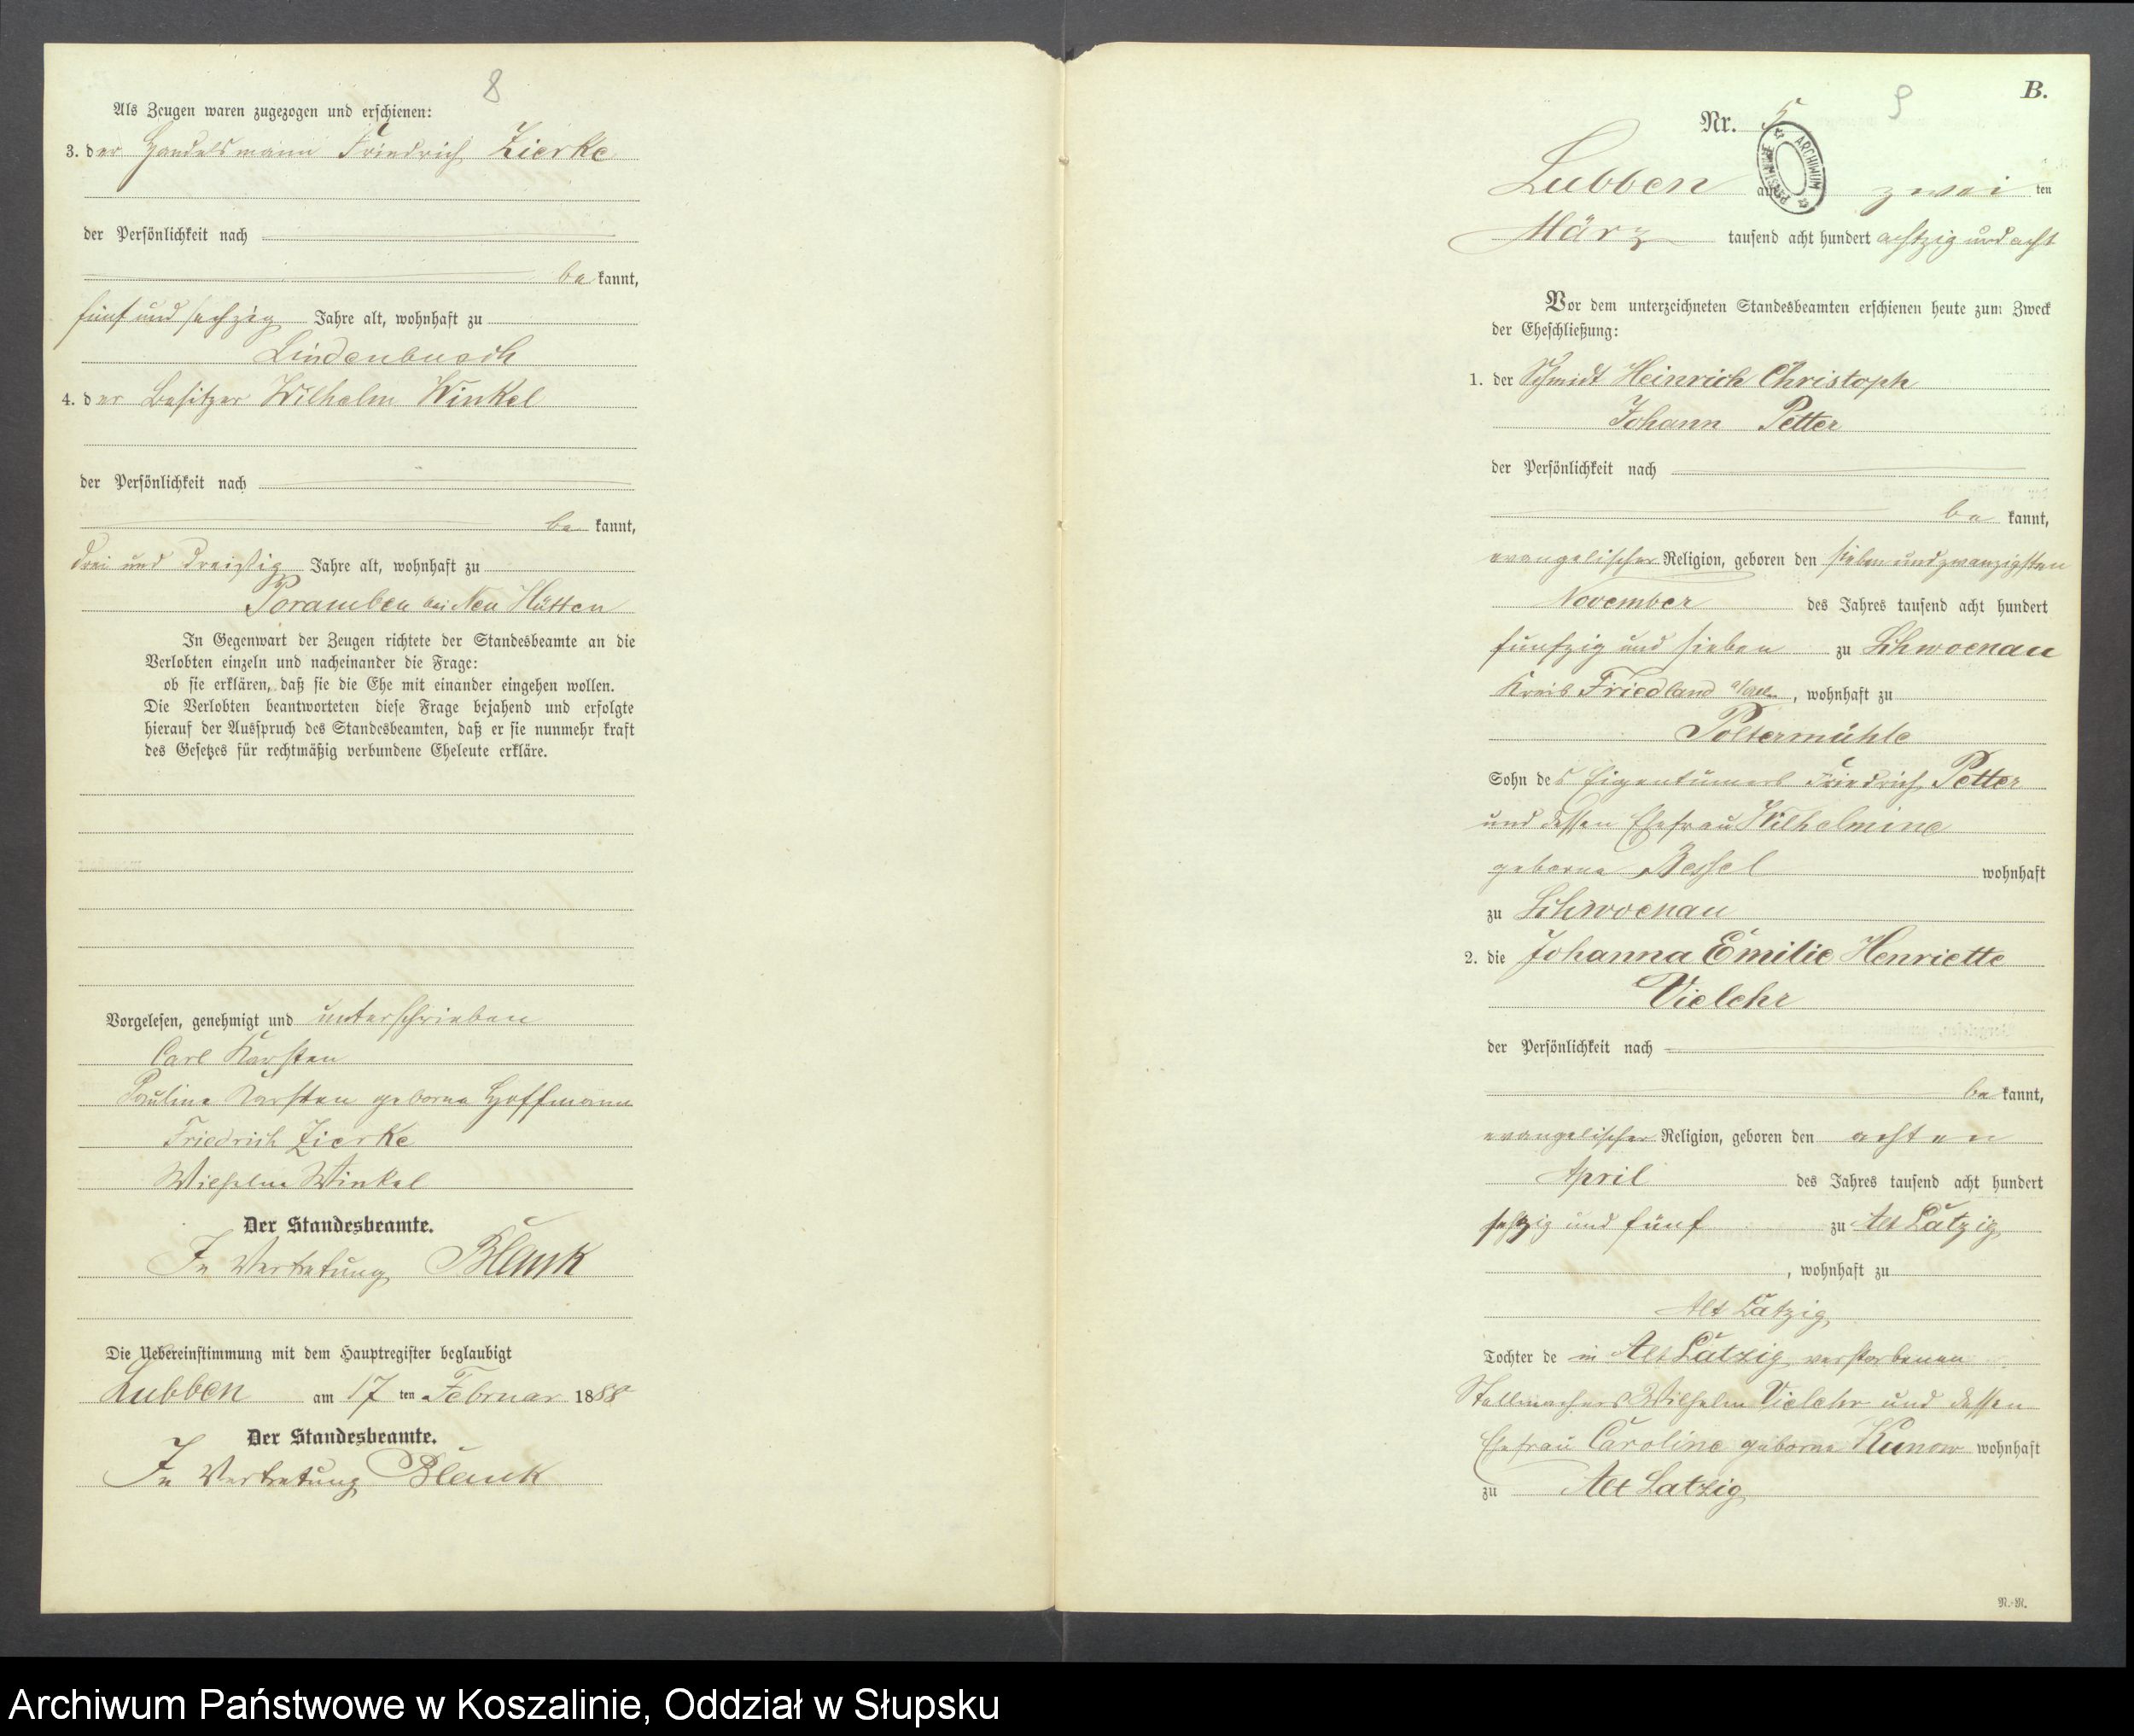 8
Als Zeugen waren zugezogen und erschienen:
3. der Handelsmann Friedrich Zierke
der Persönlichkeit nach
be kannt,
fünf und sechzig Jahre alt, wohnhaft zu
Lindenbusch
4. der Besitzer Wilhelm Winkel
der Persönlichkeit nach
be kannt,
drei und dreißig Jahre alt, wohnhaft zu
bei Neu Hütten
In Gegenwart der Zeugen richtete der Standesbeamte an die
Verlobten einzeln und nacheinander die Frage:
ob sie erklären, daß sie die Ehe mit einander eingehen wollen.
Die Verlobten beantworteten diese Frage bejahend und erfolgte
hierauf der Ausspruch des Standesbeamten, daß er sie nunmehr kraft
des Gesetzes für rechtmäßig verbundene Eheleute erkläre.
Vorgelesen, genehmigt und unterschrieben
Carl Karsten
Pauline Karsten geborne Hoffmann
Friedrich Zierke
Winkel
Der Standesbeamte.
In Vertretung Blank
Die Uebereinstimmung mit dem Hauptregister beglaubigt
Lubben am 17 ten Februar 1888
Der Standesbeamte.
In Vertretung Blank
B.
9
Nr. 5
ARCHIWUM PAŃSTWOWE
Lubben am zwei ten
März tausend acht hundert achtzig und acht
Vor dem unterzeichneten Standesbeamten erschienen heute zum Zweck
der Eheschließung:
1. der Schmidt Heinrich Christoph
Johann Petter
der Persönlichkeit nach
be kannt,
evangelischer Religion, geboren den sieben und zwanzigsten
November des Jahres tausend acht hundert
fünfzig und sieben zu Schwoenau
Kreis Friedland , wohnhaft zu
Poltermühle
Sohn des Eigentümers Friedrich Petter
und dessen Ehefrau Wilhelmine
geborne Bessel wohnhaft
zu Schwoenau
2. die Johanna Emilie Henriette
Vielehr
der Persönlichkeit nach
be kannt,
evangelischer Religion, geboren den achten
April des Jahres tausend acht hundert
sechzig und fünf zu Alt Latzig
, wohnhaft zu
Alt Latzig
Tochter de in Alt Latzig verstorbenen
Stellmachers Wilhelm Vielehr und dessen
Ehefrau Caroline geborne Kunow wohnhaft
zu Alt Latzig
N.-N.
Archiwum Państwowe w Koszalinie, Oddział w Słupsku